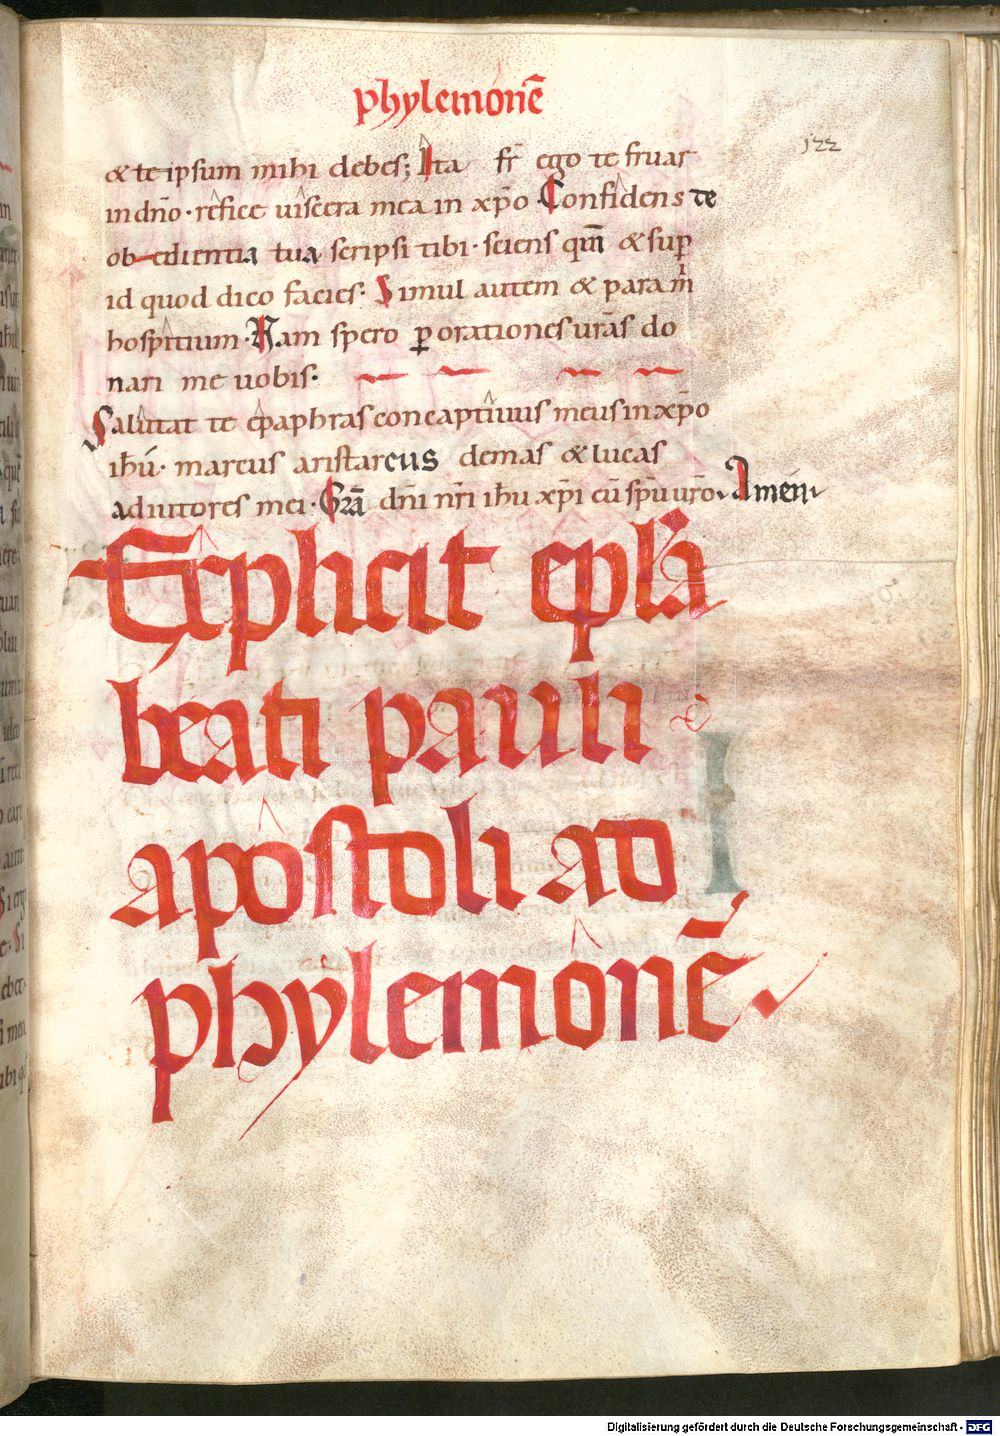 phylemonē
122
& te ipsum mihi debes; Ita fr̄ ego te fruar
in dn̄o · refice uiscera mea in xp̄o Confidens te
obedientia tua scripsi tibi · sciens qm̄ & sup̄
id quod dico facies · Simul autem & para m̄
hospitium · Nam spero ꝑ orationes urās do
nari me uobis ·
Salutat te epaphras concaptiuus meus in xp̄o
ih̄u · marcus aristarcus demas & lucas
adiutores mei · Grā dn̄i nr̄i ih̄u xp̄i cū sp̄u uro · Amen
Explicit ep̄la
beati pauli
apostoli ad
phylemonē ·
Digitalisierung gefördert durch die Deutsche Forschungsgemeinschaft - DFG